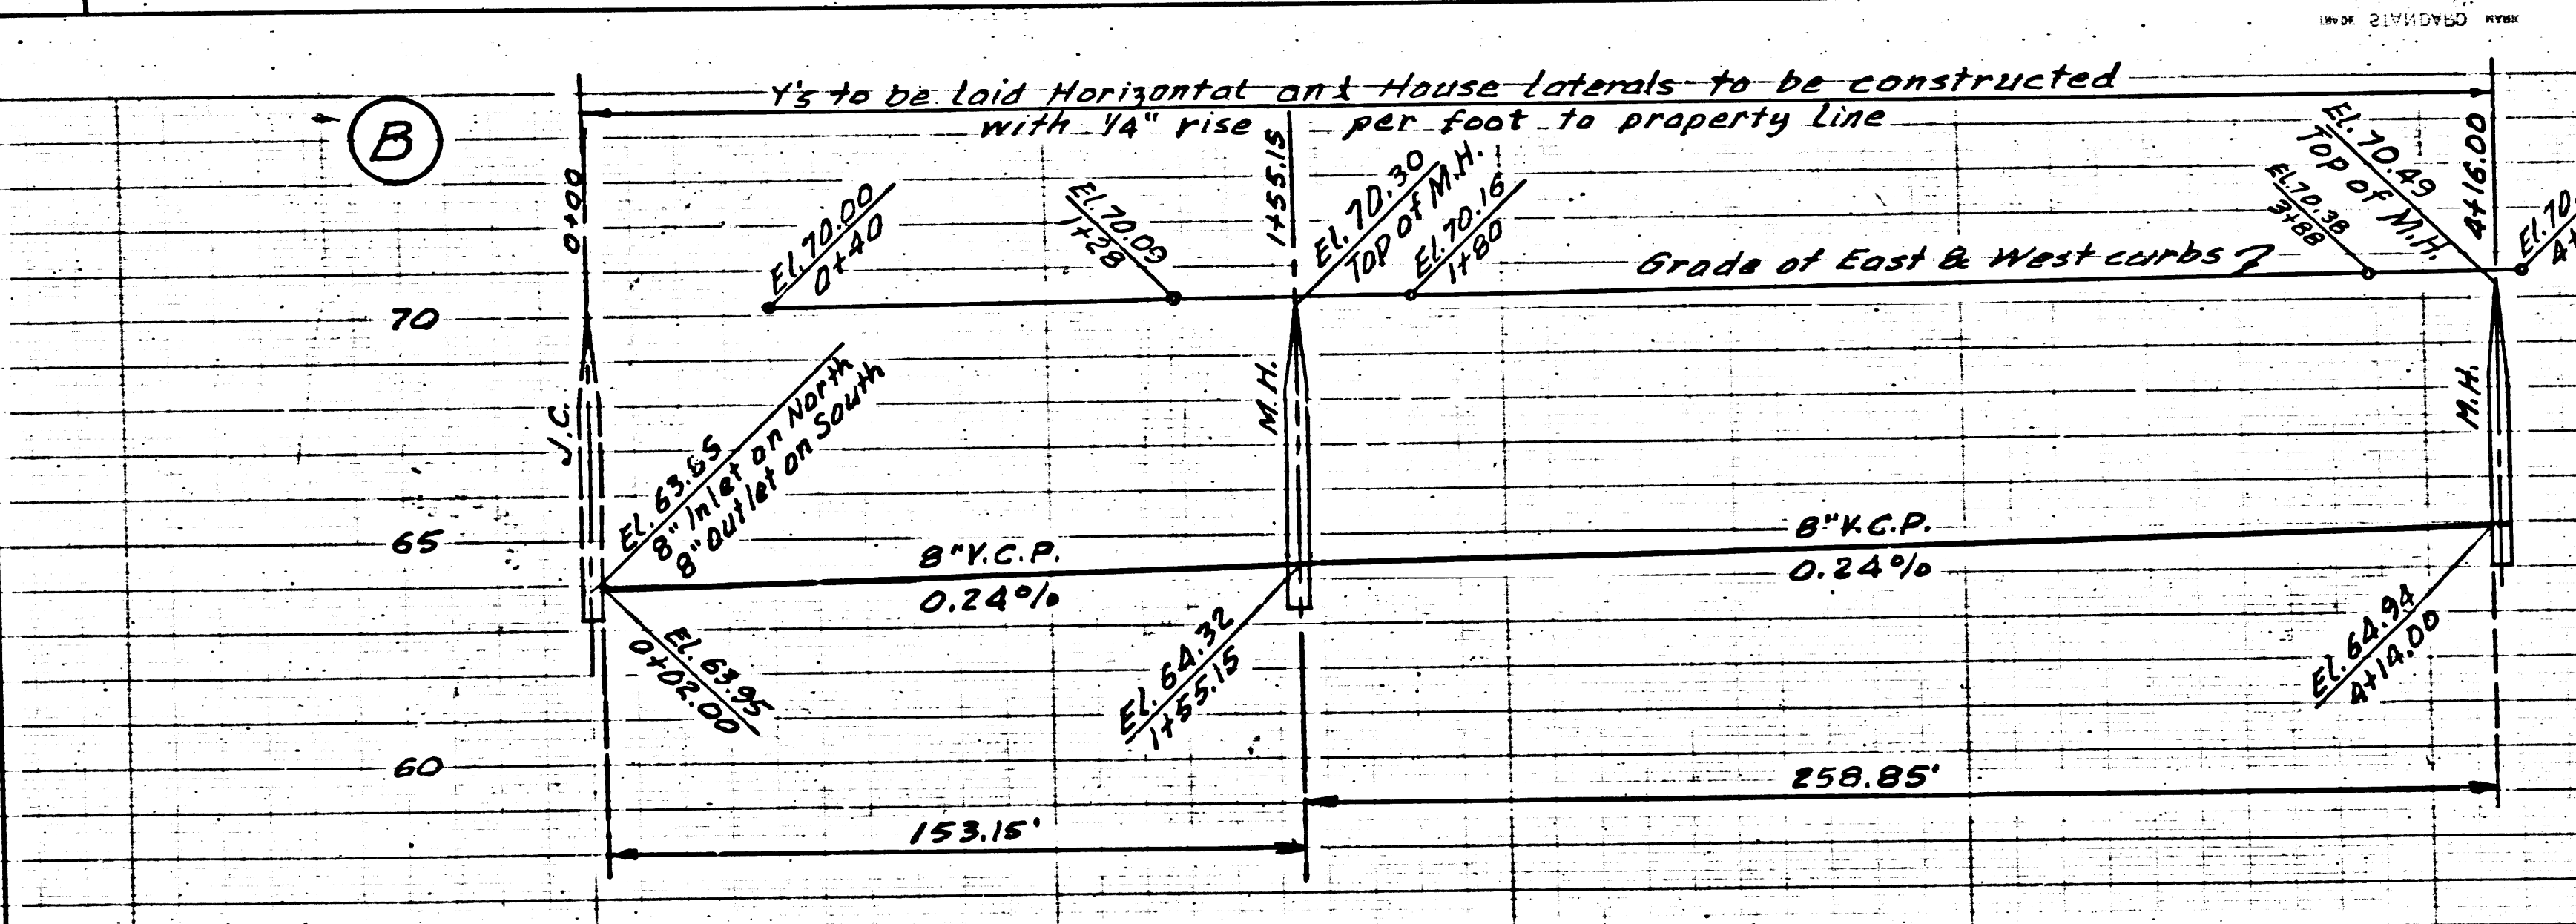 TRADE STANDARD MARK
Y's to be laid Horizontal and House laterals to be constructed
with 1/4" rise per foot to property line
B
0+00
El. 70.00
0+40
El. 70.09
1+28
1+55.15
El. 70.30
Top of M.H.
El. 70.16
1+80
Grade of East & West curbs
El. 70.38
3+88
El. 70.49
Top of M.H.
4+16.00
El. 70
4+
70
65
60
J.C.
El. 63.85
8" Inlet on North
8" Outlet on South
El. 63.95
0+02.00
8" V.C.P.
0.24%
M.H.
El. 64.32
1+55.15
8" V.C.P.
0.24%
M.H.
El. 64.94
4+14.00
153.15'
258.85'